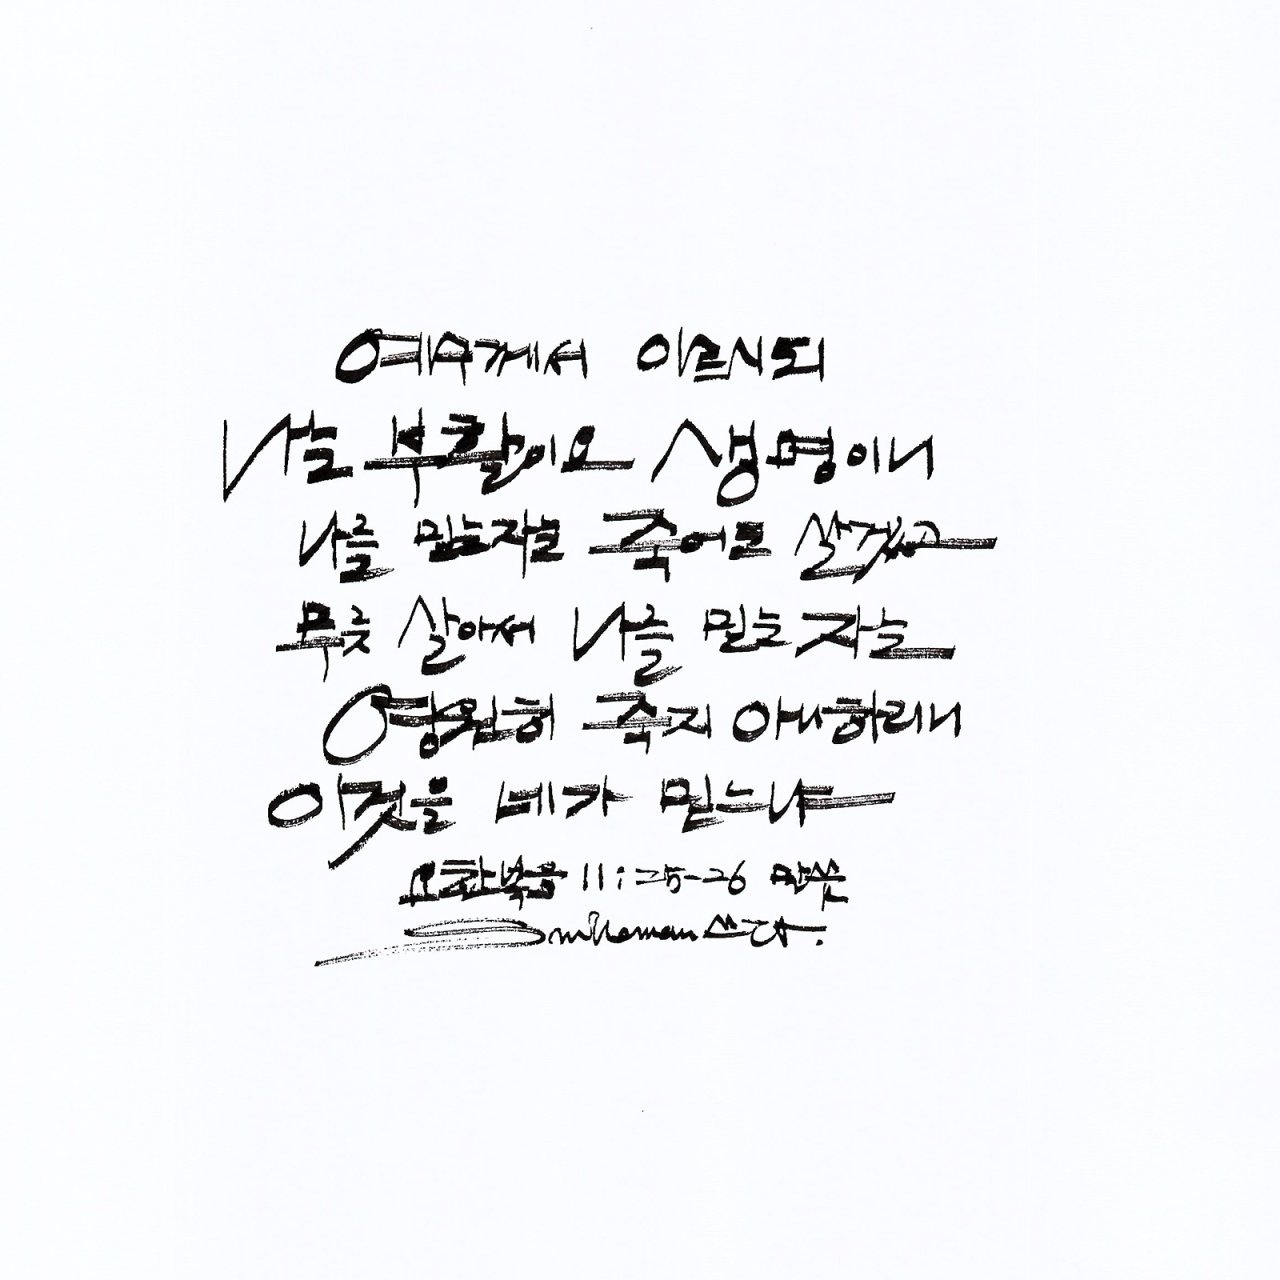 예수께서 이르시되
나는 부활이요 생명이니
나를 믿는자는 죽어도 살겠고
무릇 살아서 나를 믿는 자는
영원히 죽지 아니하리니
이것을 네가 믿느냐
요한복음 11:25-26 말씀
Smileman 쓰다.